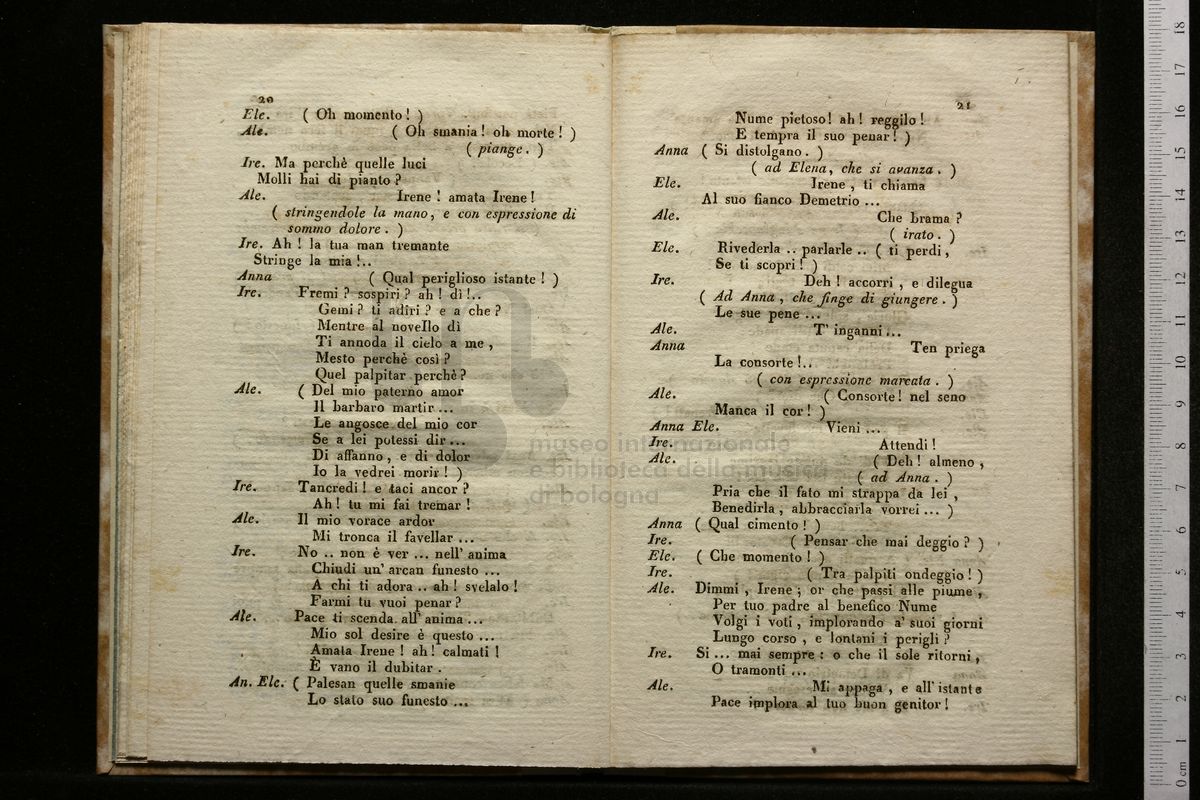 20
Ele. ( Oh momento ! )
Ale. ( Oh smania ! oh morte ! )
( piange. )
Ire. Ma perchè quelle luci
Molli hai di pianto ?
Ale. Irene ! amata Irene !
( stringendole la mano, e con espressione di
sommo dolore. )
Ire. Ah ! la tua man tremante
Stringe la mia !..
Anna ( Qual periglioso istante ! )
Ire. Fremi ? sospiri ? ah ! dì !..
Gemi ? ti adiri ? e a che ?
Mentre al novello dì
Ti annoda il cielo a me ,
Mesto perchè così ?
Quel palpitar perchè ?
Ale. ( Del mio paterno amor
Il barbaro martir ...
Le angosce del mio cor
Se a lei potessi dir ...
Di affanno , e di dolor
Io la vedrei morir ! )
Ire. Tancredi ! e taci ancor ?
Ah ! tu mi fai tremar !
Ale. Il mio vorace ardor
Mi tronca il favellar ...
Ire. No .. non è ver ... nell' anima
Chiudi un' arcan funesto ...
A chi ti adora .. ah ! svelalo !
Farmi tu vuoi penar ?
Ale. Pace ti scenda all' anima ...
Mio sol desire è questo ...
Amata Irene ! ah ! calmati !
È vano il dubitar .
An. Ele. ( Palesan quelle smanie
Lo stato suo funesto ...
21
Nume pietoso ! ah ! reggilo !
E tempra il suo penar ! )
Anna ( Si distolgano . )
( ad Elena, che si avanza . )
Ele. Irene , ti chiama
Al suo fianco Demetrio ...
Ale. Che brama ?
( irato . )
Ele. Rivederla .. parlarle .. ( ti perdi ,
Se ti scopri ! )
Ire. Deh ! accorri , e dilegua
( Ad Anna , che finge di giungere . )
Le sue pene ...
Ale. T' inganni ...
Anna Ten priega
La consorte !..
( con espressione marcata . )
Ale. ( Consorte ! nel seno
Manca il cor ! )
Anna Ele. Vieni ...
Ire. Attendi !
Ale. ( Deh ! almeno ,
( ad Anna . )
Pria che il fato mi strappa da lei ,
Benedirla , abbracciarla vorrei ... )
Anna ( Qual cimento ! )
Ire. ( Pensar che mai deggio ? )
Ele. ( Che momento ! )
Ire. ( Tra palpiti ondeggio ! )
Ale. Dimmi , Irene ; or che passi alle piume ,
Per tuo padre al benefico Nume
Volgi i voti , implorando a' suoi giorni
Lungo corso , e lontani i perigli ?
Ire. Si ... mai sempre : o che il sole ritorni ,
O tramonti ...
Ale. Mi appaga , e all' istante
Pace implora al tuo buon genitor !
museo internazionale
e biblioteca della musica
di bologna
0 cm 1 2 3 4 5 6 7 8 9 10 11 12 13 14 15 16 17 18